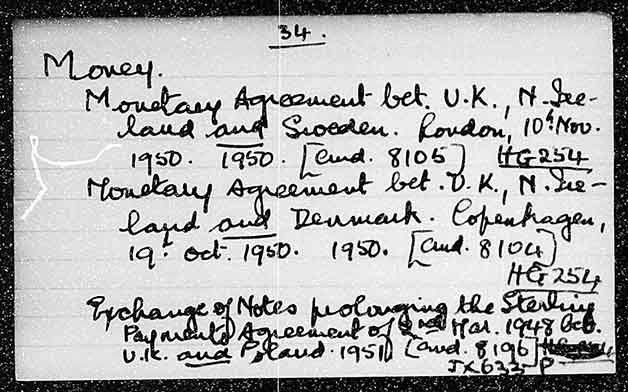 34.
Money.
Monetary Agreement bet. U.K., N. Ire-
land and Sweden. London, 10th Nov.
1950. 1950. [Cmd. 8105] HG254
Monetary Agreement bet. U.K., N. Ire-
land and Denmark. Copenhagen,
19. Oct. 1950. 1950. [Cmd. 8104]
HG254
Exchange of Notes prolonging the Sterling
Payments Agreement of 2nd Mar. 1948 bet.
U.K. and Poland. 1951 [Cmd. 8196]
JX632 P